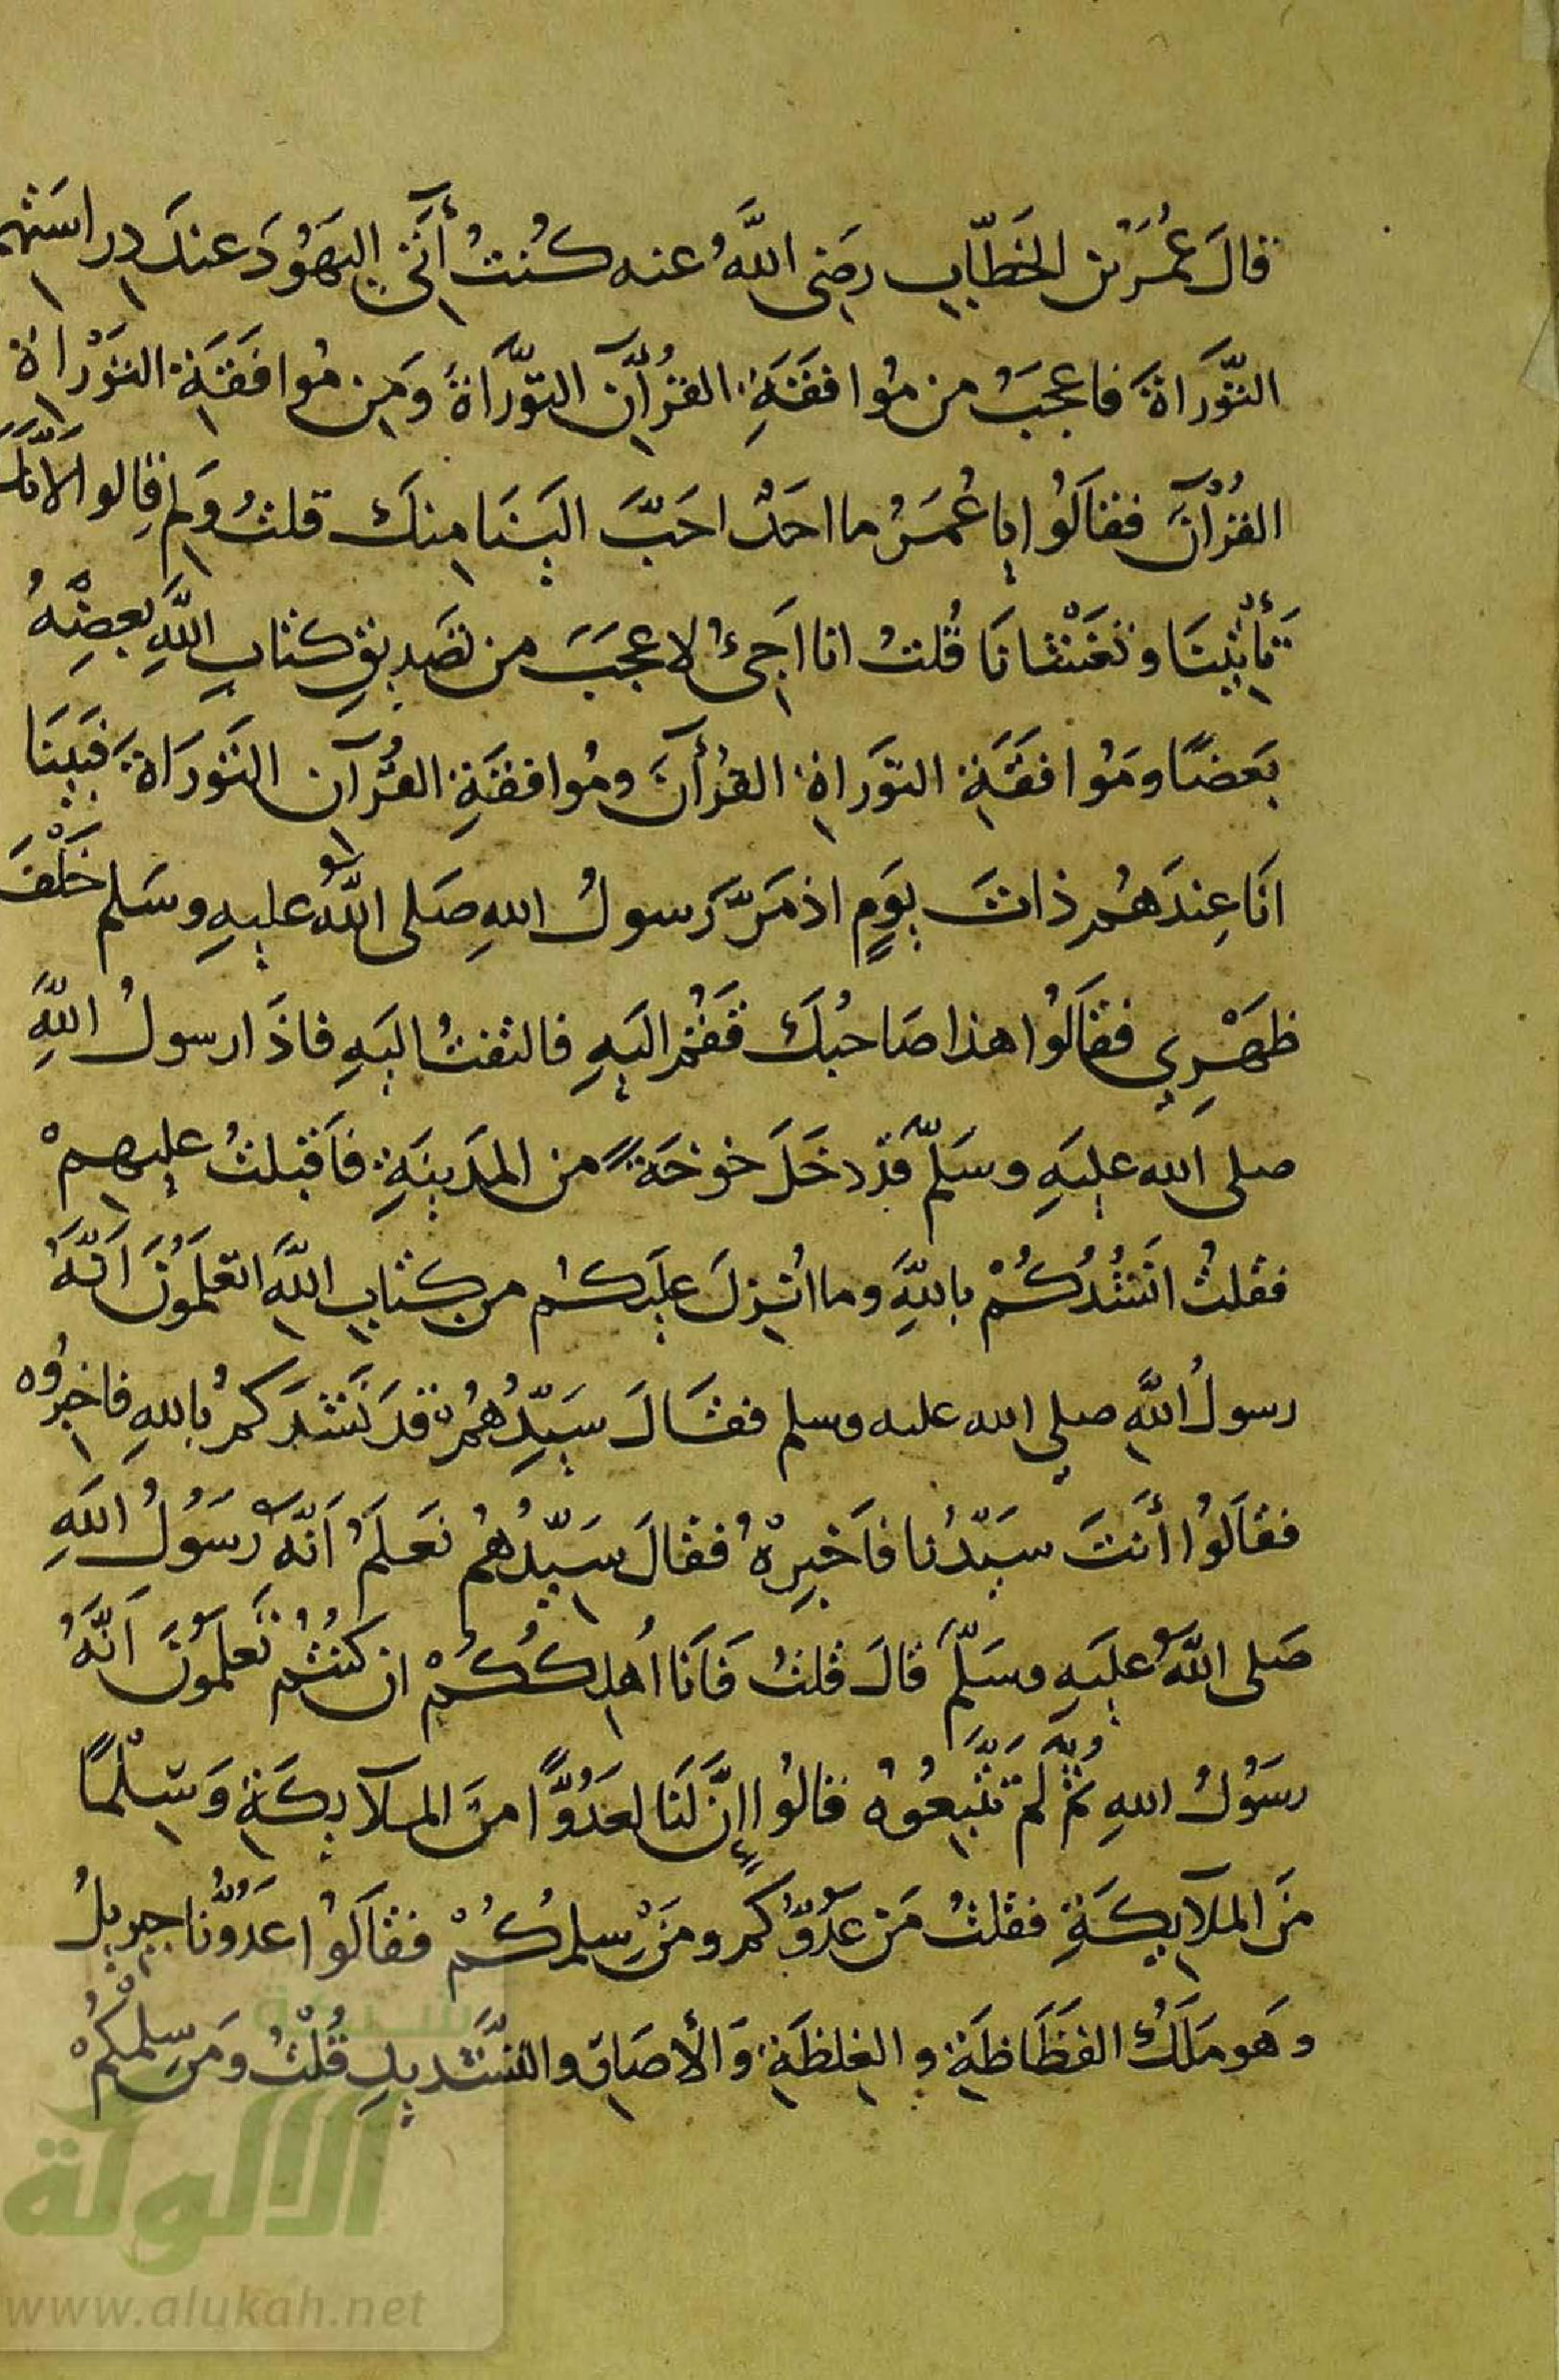 قالَ عُمَرُ بن الخَطّابِ رضِى اللَّهُ عنه كُنتُ أَتى اليَهُودَ عندَ دِراسَتِهم
التَّوَراةَ فاعجَبُ من مُوافقَةِ القُرآنِ التَّوَراةَ وَمِن مُوافَقَةِ التَوْراةِ
القُرْآنَ فقالَوُا يا عُمَرُ ما احَدٌ احَبَّ الَيَنا مِنكَ قلتُ وَلِم قالوا لأنّكَ
تَأتِيَنا وتَغَشانَا قُلتُ انا اجَىُٔ لاعجَبَ من تَصَدِيقِ كتابِ اللَّهِ بعضِهُ
بَعضًا ومَوُافقَةِ التَوَراةِ القُرأنَ ومُوافقَةِ القُرآنِ التَوَراةَ فبَينَا
انَا عِندَهُم ذاتَ يوَمٍ اذ مَرَّ رَسولُ اللهِ صَلى اللَّهُ عليهِ وسَلم خَلْفَ
ظَهَرِي فقالَوُا هذا صَاحبُكَ فَقُم الَيهِ فالتفتُ الَيهِ فاذَا رسولُ اللَّهِ
صلى اللَه عليَهِ وسَلَّم قدَ دخَلَ خوَخَةً من المدَينِةِ فاَقبلتُ عليهِمْ
فقلتُ انَشُدُكُمْ باللَّهِ وما انُزِلَ علَيكُم من كِتابِ اللَّهِ اتعَلَمُونَ انَّهُ
رسولُ اللَّهِ صلي الله عليه وسلم فقالَ سَيِّدُهُم قدَ نَشدَكمُ باللهِ فاخبِروُه
فقالَوُا أنَتَ سَيّدُنا فاَخبِرهُ فقالَ سَيّدُهُم نعَلَمُ اَنّهُ رَسَوُلُ اللَهِ
صَلى اللَّهُ علَيَهِ وسَلّمَ قالَ قلتُ فَانَا اُهلِكُكُمْ ان كنُتُم تَعلَمُونَ انَّهُ
رسَوُلُ اللهِ ثمُّ لمَ تَتَّبِعُوهُ قالوُا إنَّ لَنَا لعَدُوًّا منَ المَلآيِكَةِ وَسِلْمًا
منَ المَلآيِكَةِ فقلتُ مَن عَدُوّكُم ومَن سِلمُكُمْ فقالَوُا عَدُوُّنا جبريلُ
وهَو مَلَكُ الفَظَاظَةِ والغِلظَةِ وَالأصَارِ والتَّشَديِدِ قُلْتُ ومَن سِلمُكُمْ
شبكة
الألوكة
www.alukah.net